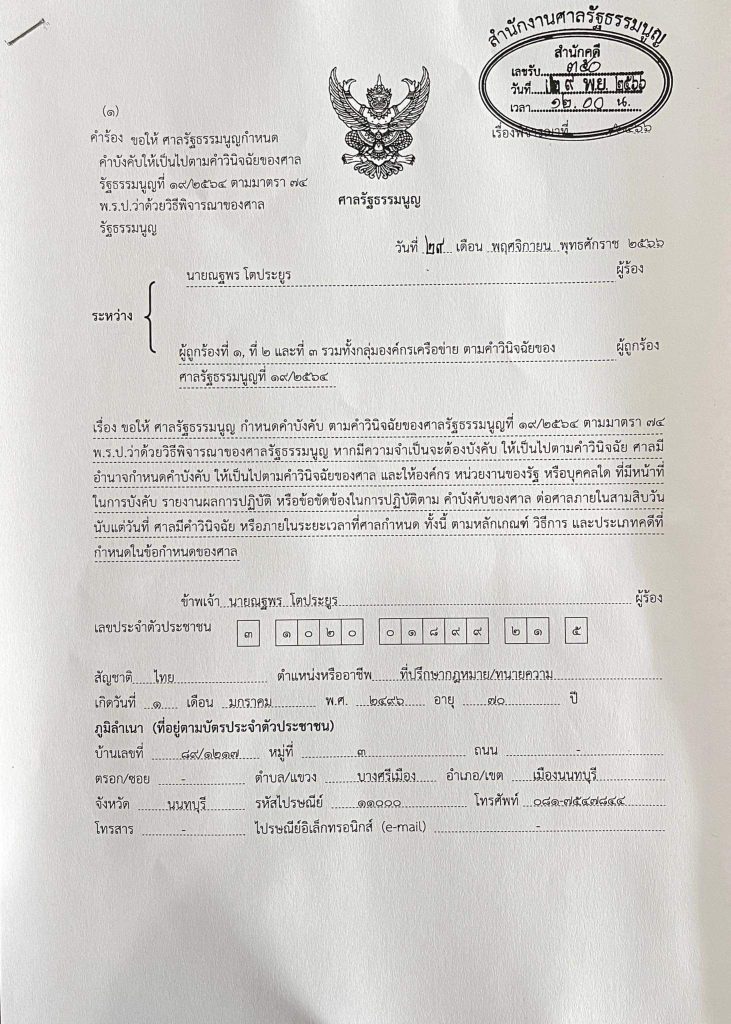 สำนักงานศาลรัฐธรรมนูญ
สำนักคดี
เลขรับ ๓๕๐
วันที่ ๒๙ พ.ย. ๒๕๖๖
เวลา ๑๒.๐๐ น.
(๑)
เรื่องพิจารณาที่
คำร้อง ขอให้ ศาลรัฐธรรมนูญกำหนด
คำบังคับให้เป็นไปตามคำวินิจฉัยของศาล
รัฐธรรมนูญที่ ๑๙/๒๕๖๔ ตามมาตรา ๗๔
พ.ร.ป.ว่าด้วยวิธีพิจารณาของศาล
รัฐธรรมนูญ
ศาลรัฐธรรมนูญ
วันที่ ๒๙ เดือน พฤศจิกายน พุทธศักราช ๒๕๖๖
นายณฐพร โตประยูร ผู้ร้อง
ระหว่าง
ผู้ถูกร้องที่ ๑, ที่ ๒ และที่ ๓ รวมทั้งกลุ่มองค์กรเครือข่าย ตามคำวินิจฉัยของ ผู้ถูกร้อง
ศาลรัฐธรรมนูญที่ ๑๙/๒๕๖๔
เรื่อง ขอให้ ศาลรัฐธรรมนูญ กำหนดคำบังคับ ตามคำวินิจฉัยของศาลรัฐธรรมนูญที่ ๑๙/๒๕๖๔ ตามมาตรา ๗๔
พ.ร.ป.ว่าด้วยวิธีพิจารณาของศาลรัฐธรรมนูญ หากมีความจำเป็นจะต้องบังคับ ให้เป็นไปตามคำวินิจฉัย ศาลมี
อำนาจกำหนดคำบังคับ ให้เป็นไปตามคำวินิจฉัยของศาล และให้องค์กร หน่วยงานของรัฐ หรือบุคคลใด ที่มีหน้าที่
ในการบังคับ รายงานผลการปฏิบัติ หรือข้อขัดข้องในการปฏิบัติตาม คำบังคับของศาล ต่อศาลภายในสามสิบวัน
นับแต่วันที่ ศาลมีคำวินิจฉัย หรือภายในระยะเวลาที่ศาลกำหนด ทั้งนี้ ตามหลักเกณฑ์ วิธีการ และประเภทคดีที่
กำหนดในข้อกำหนดของศาล
ข้าพเจ้า นายณฐพร โตประยูร ผู้ร้อง
เลขประจำตัวประชาชน ๓ ๑๐๒๐ ๐๑๘๙๙ ๒๑ ๕
สัญชาติ ไทย ตำแหน่งหรืออาชีพ ที่ปรึกษากฎหมาย/ทนายความ
เกิดวันที่ ๑ เดือน มกราคม พ.ศ. ๒๔๙๖ อายุ ๗๐ ปี
ภูมิลำเนา (ที่อยู่ตามบัตรประจำตัวประชาชน)
บ้านเลขที่ ๘๙/๑๒๑๗ หมู่ที่ ๓ ถนน -
ตรอก/ซอย - ตำบล/แขวง บางศรีเมือง อำเภอ/เขต เมืองนนทบุรี
จังหวัด นนทบุรี รหัสไปรษณีย์ ๑๑๐๐๐ โทรศัพท์ ๐๘๑-๗๕๔๗๘๔๔
โทรสาร - ไปรษณีย์อิเล็กทรอนิกส์ (e-mail) -